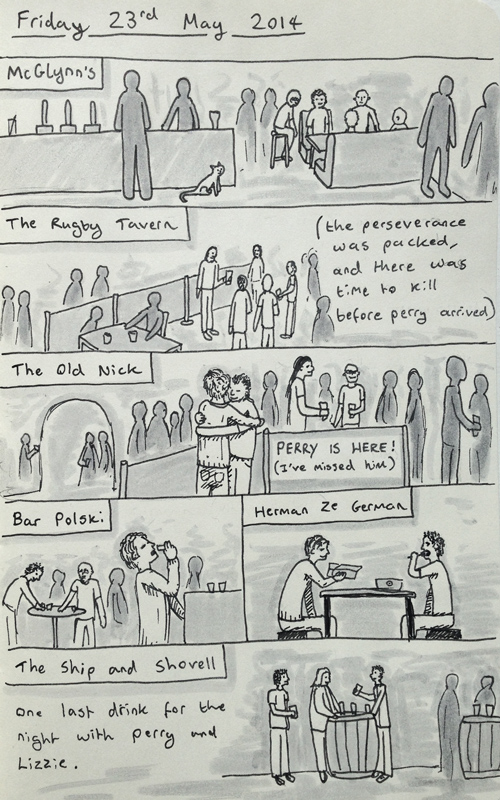 Friday 23rd May 2014
McGlynn's
The Rugby Tavern
(the perseverance
was packed,
and there was
time to kill
before perry arrived)
The Old Nick
PERRY IS HERE!
(I've missed him)
Bar Polski
Herman Ze German
The Ship and Shovell
one last drink for the
night with perry and
Lizzie.